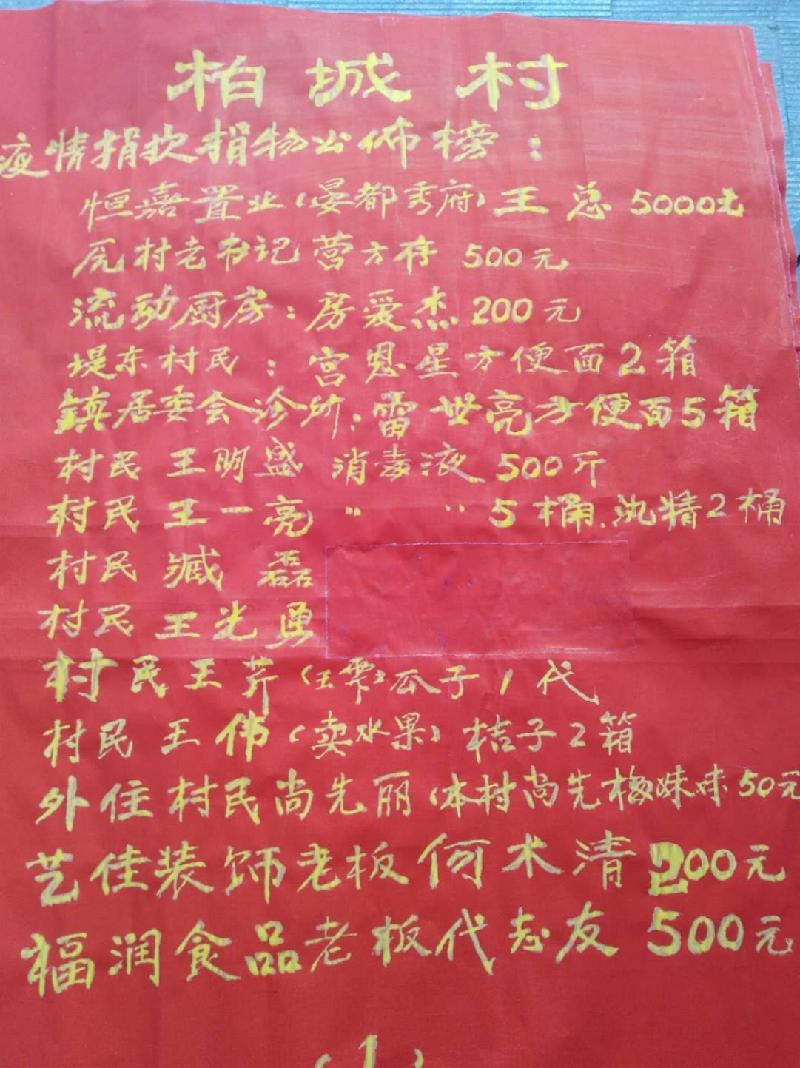 柏城村
疫情捐款捐物公佈榜：
恒嘉置业（晏都秀府）王总 5000元
尻村老书记营方存 500元
流动厨房：房爱杰 200元
堤东村民：宫恩星方便面2箱
鎮居委会诊所：雷世亮方便面5箱
村民 王明盛 消毒液 500斤
村民 王一亮 〃 〃 5桶.氿精2桶
村民 臧磊
村民 王光勇
村民王芹（王雫）瓜子1代
村民 王伟（卖水果）桔子2箱
外住村民尚先丽（本村尚先梅妹妹50元
艺佳装饰老板何术清200元
福润食品老板代志友 500元
（1）